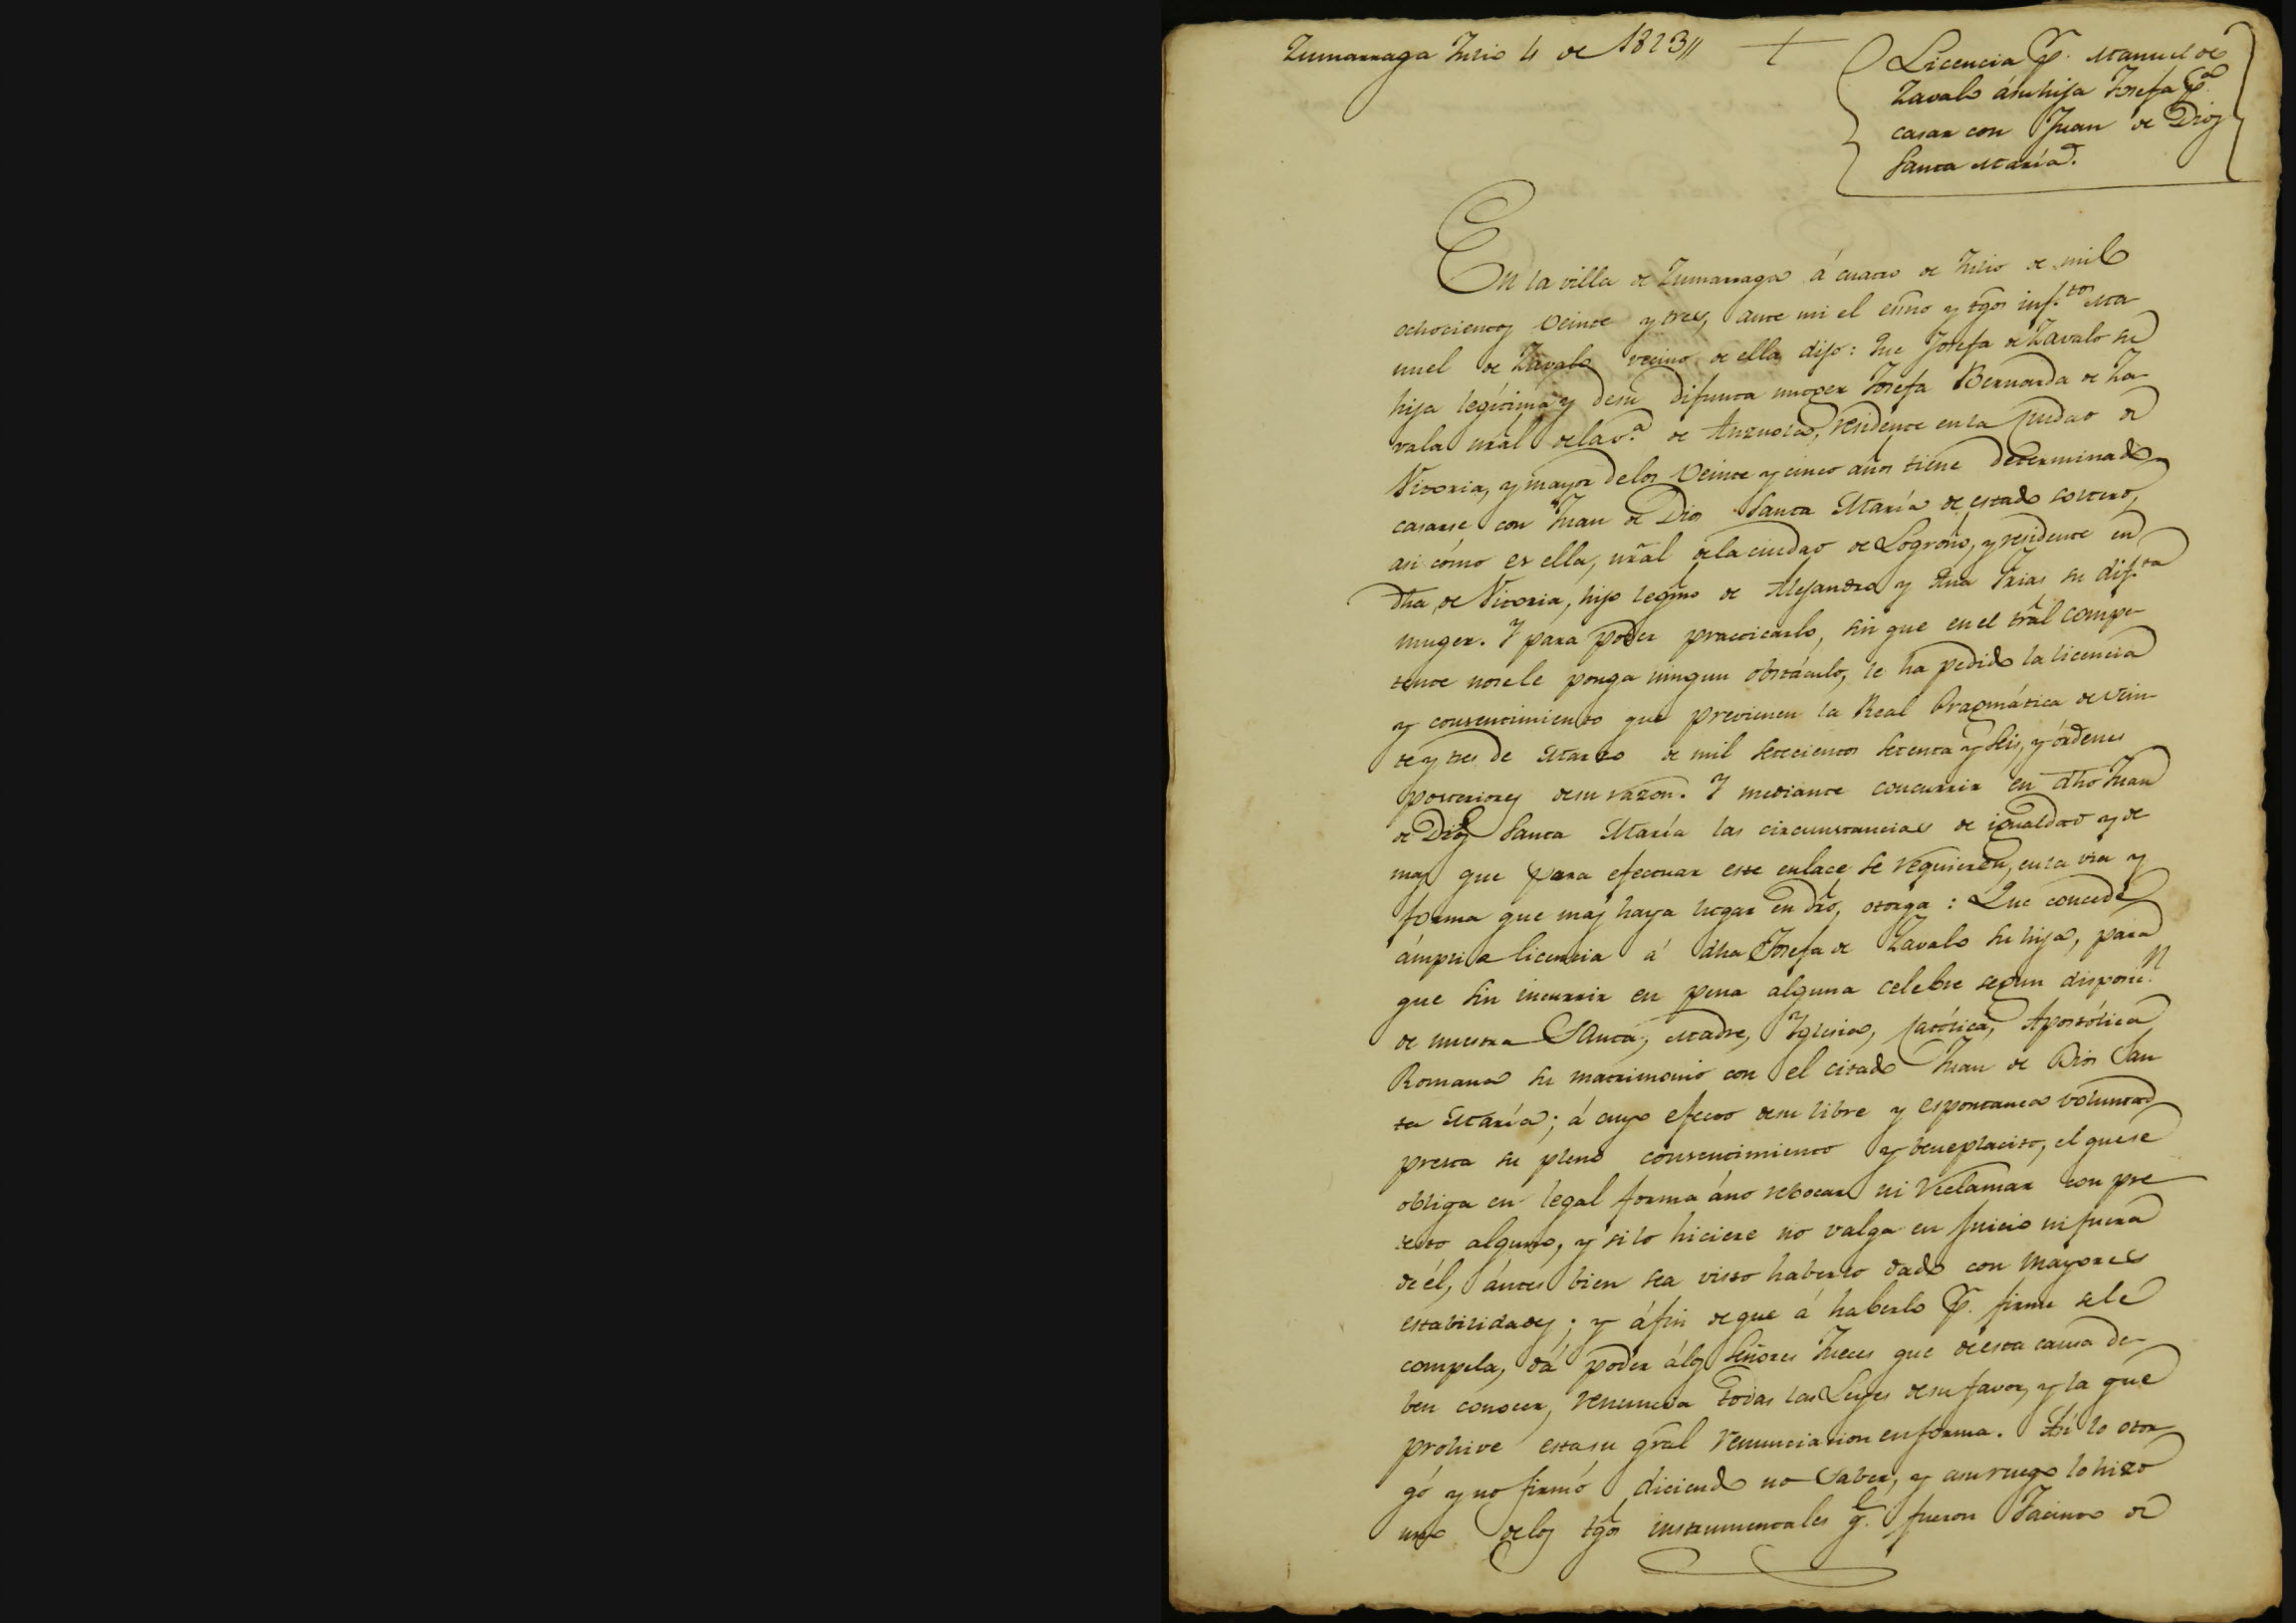 Zumarraga Julio 4 de 1823 //
Licencia p.r Manuel de
Zavalo á su hija Josefa p.a
casar con Juan de Dios
Santa María.
En la villa de Zumarraga á cuatro de Julio de mil
ochocientos veinte y tres, ante mi el esño y tgos inf.tos Ma-
nuel de Zavalo vecino de ella dijo: Que Josefa de Zavalo su
hija legítima y de su difunta muger Josefa Bernarda de Za-
vala nral de la v.a de Anzuola, residente en la ciudad de
Vitoria, y mayor de los veinte y cinco años tiene determinado
casarse con Juan de Dios Santa María de estado soltero,
asi cómo es ella, nral de la ciudad de Logroño, y residente en
dha de Vitoria, hijo legmo de Alejandro y Ana Frias su dif.ta
muger. Y para poder practicarlo, sin que en el tral compe-
tente no se le ponga ningun obstáculo, le ha pedido la licencia
y consentimiento que previenen la Real Pragmática de vein-
te y tres de Marzo de mil setecientos setenta y seis, y órdenes
posteriores de su razon. Y mediante concurrir en dho Juan
de Dios Santa María las circunstancias de igualdad y de
mas que para efectuar este enlace se requieren, en la via y
forma que mas haya lugar en dro, otorga: Que concede
ámplia licencia á dha Josefa de Zavalo su hija, para
que sin incurrir en pena alguna celebre segun disposic.n
de nuestra Santa, Madre, Iglesia, Católica, Apostólica
Romana su matrimonio con el citado Juan de Dios San
ta María; á cuyo efecto de su libre y espontanea voluntad
presta su pleno consentimiento y beneplacito, el que se
obliga en legal forma á no rebocar ni reclamar con pre
testo alguno, y si lo hiciere no valga en Juicio ni fuera
de él, ántes bien sea visto haberlo dado con mayores
estabilidades; y á fin de que á haberlo p.r firme se le
compela, dá poder á los Señores Jueces que de esta causa de-
ben conocer, renuncia todas las Leyes de su favor, y la que
prohive esta su gral renunciacion en forma. Asi lo otor
gó y no firmó diciendo no saber, y a su ruego lo hizo
uno de los tgos instrumentales q.e fueron Jacinto de